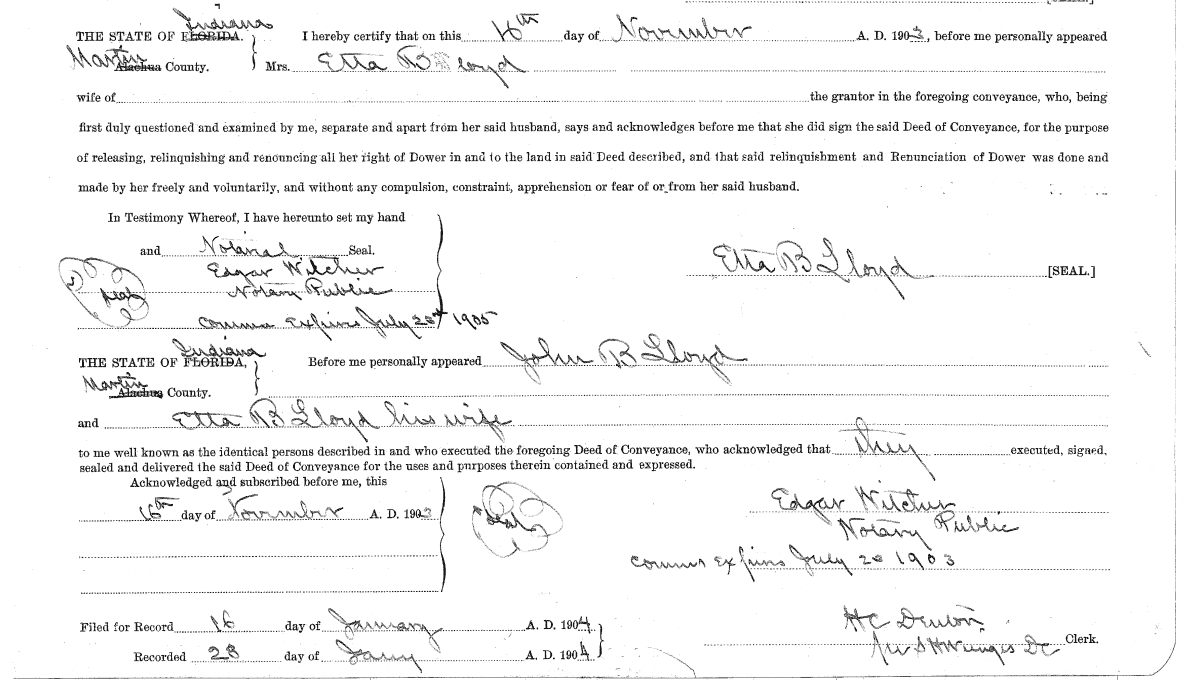 [SEAL.]
Indiana
THE STATE OF FLORIDA. I hereby certify that on this 16th day of November A. D. 1903, before me personally appeared
Martin Alachua County. Mrs. Etta B Lloyd
wife of the grantor in the foregoing conveyance, who, being
first duly questioned and examined by me, separate and apart from her said husband, says and acknowledges before me that she did sign the said Deed of Conveyance, for the purpose
of releasing, relinquishing and renouncing all her right of Dower in and to the land in said Deed described, and that said relinquishment and Renunciation of Dower was done and
made by her freely and voluntarily, and without any compulsion, constraint, apprehension or fear of or from her said husband.
In Testimony Whereof, I have hereunto set my hand
and Notarial Seal.
Etta B Lloyd [SEAL.]
Edgar Witcher
Seal Notary Public
Comms Expires July 1905
Indiana
THE STATE OF FLORIDA, Before me personally appeared John B Lloyd
Martin Alachua County.
and Etta B Lloyd his wife
to me well known as the identical persons described in and who executed the foregoing Deed of Conveyance, who acknowledged that they executed, signed,
sealed and delivered the said Deed of Conveyance for the uses and purposes therein contained and expressed.
Acknowledged and subscribed before me, this
16th day of November A. D. 1903 Seal
Edgar Witcher
Notary Public
Comms Expires July 20 1903
Filed for Record 16 day of January A. D. 1904
H C Denton
Recorded 28 day of Jany A. D. 1904 DC Clerk.